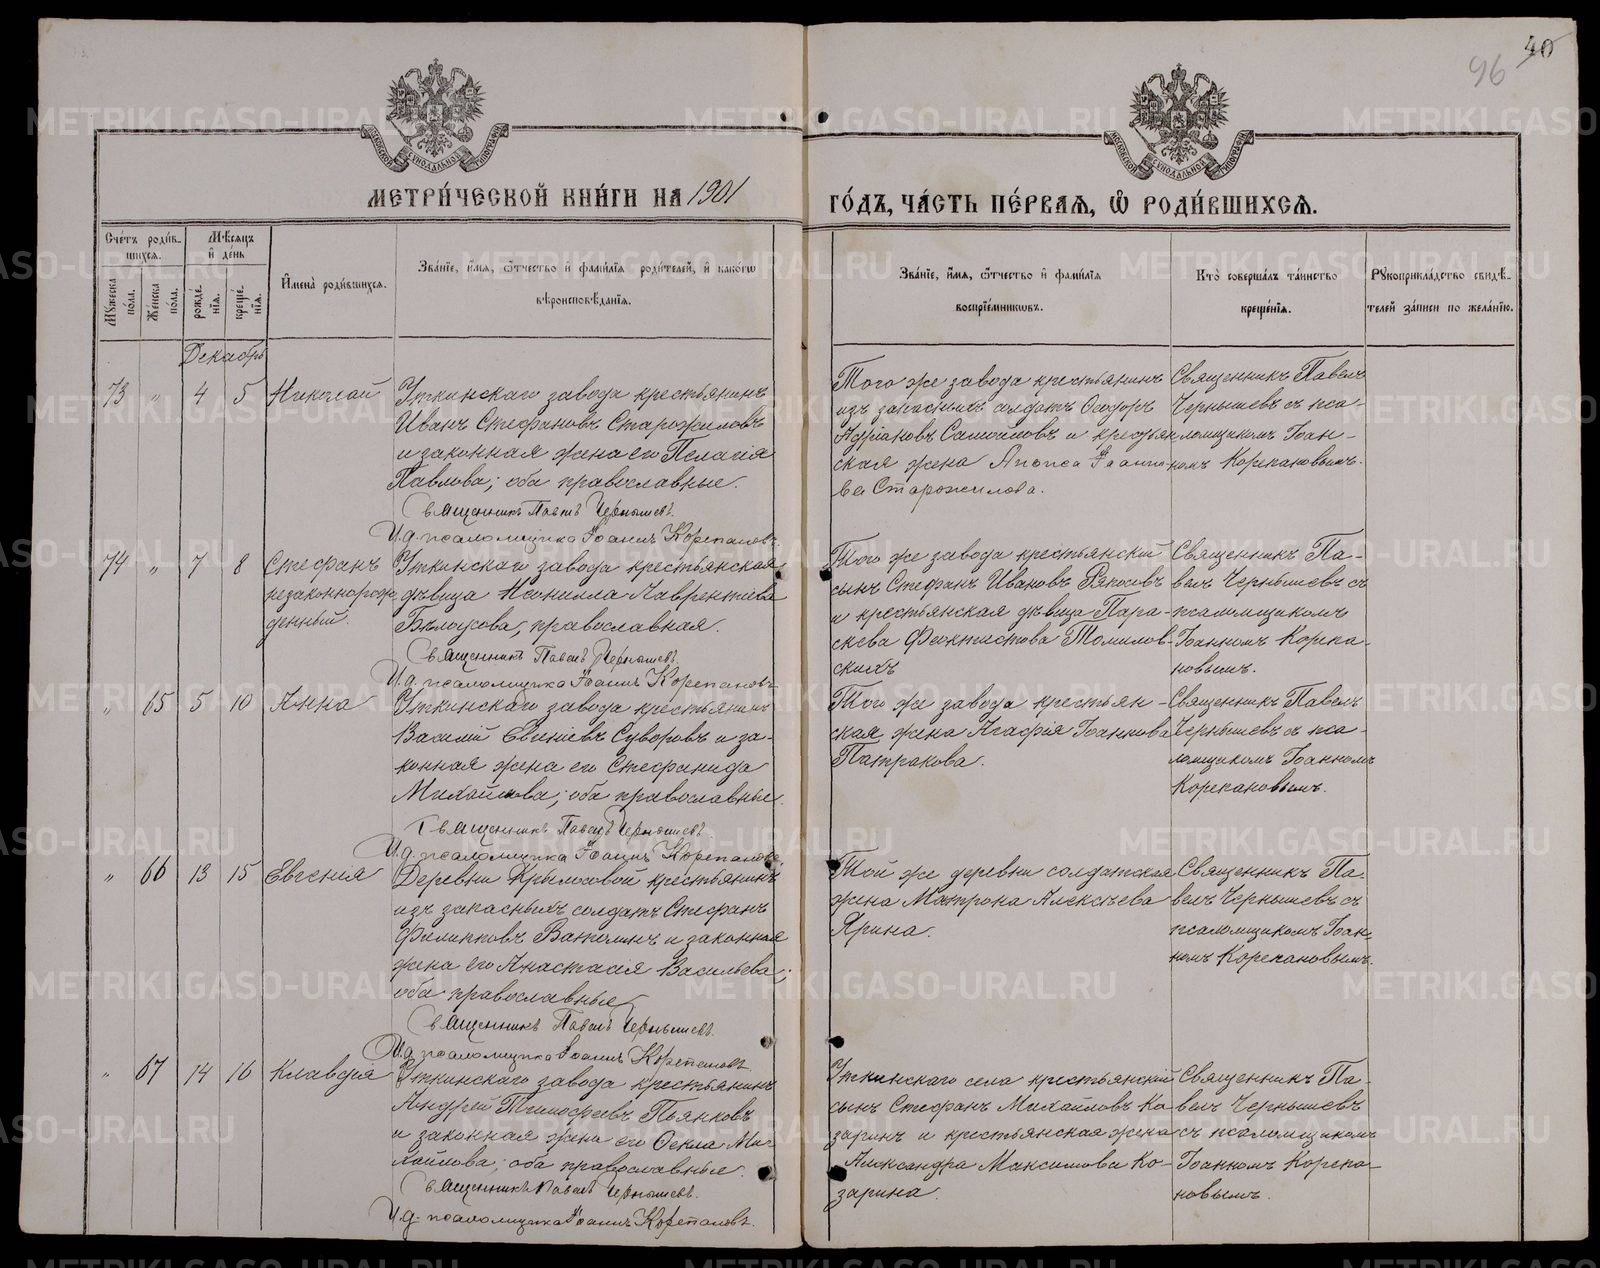 96 40
МЕТРИ́ЧЕСКОЙ КНИ́ГИ НА 1901
ГО́ДЪ, ЧА́СТЬ ПЕ́РВАѦ, Ѡ РОДИ́ВШИХСѦ.
Сче́тъ роди́в-
шихся.
Мѣ́сяцъ
и де́нь
Мꙋжеска
по́ла.
Же́нска
по́ла.
рожде́-
нїя.
креще́-
нїя.
Имена̀ роди́вшихся.
Зва́нїе, и́мя, ѻ́тчество и фами́лїя роди́телей, и како́гѡ
вѣроисповѣ́данїя.
Зва́нїе, и́мя, ѻ́тчество и фами́лїя
воспрїе́мникѡвъ.
Кто̀ соверша́лъ та́инство
креще́нїя.
Рꙋкоприкла́дство свидѣ́-
телей за́писи по жела́нїю.
Декабрь
73 „ 4 5 Николай
Уткинскаго завода крестьянинъ
Иванъ Стефановъ Старожиловъ
и законная жена его Пелагія
Павлова; оба православные.
Священникъ Павелъ Чернышевъ.
И.д. псаломщика Іоаннъ Корепановъ.
Того же завода крестьянинъ
изъ запасныхъ солдатъ Ѳеодоръ
Адріановъ Самойловъ и крестьян
ская жена Анѳиса Іоанно
ва Старожилова.
Священникъ Павелъ
Чернышевъ съ пса-
ломщикомъ Іоан-
номъ Корепановымъ.
74 „ 7 8 Стефанъ
незаконнорож
денный.
Уткинскаго завода крестьянская
дѣвица Неонилла Лаврентіева
Бѣлоусова, православная.
Священникъ Павелъ Чернышевъ.
И.д. псаломщика Іоаннъ Корепановъ
Того же завода, крестьянскій
сынъ Стефанъ Ивановъ Ряпосовъ
и крестьянская дѣвица Пара-
скева Феоктистова Томилов-
скихъ
Священникъ Па-
велъ Чернышевъ съ
псаломщикомъ
Іоанномъ Корепа-
новымъ.
„ 65 5 10 Анна
Уткинскаго завода крестьянинъ
Василій Евгеніевъ Суворовъ и за-
конная жена его Стефанида
Михайлова; оба православные.
Священникъ Павелъ Чернышевъ.
И.д. псаломщика Іоаннъ Корепановъ.
Того же завода крестьян-
ская жена Агафія Іоаннова
Патракова.
Священникъ Павелъ
Чернышевъ съ пса-
ломщикомъ Іоанномъ
Корепановымъ.
„ 66 13 15 Евгенія
Деревни Крылосовой крестьянинъ
изъ запасныхъ солдатъ Стефанъ
Филипповъ Ватолинъ и законная
жена его Анастасія Васильева;
оба православные
Священникъ Павелъ Чернышевъ.
И.д. псаломщика Іоаннъ Корепановъ.
Той же деревни солдатская
жена Матрона Алексѣева
Ярина.
Священникъ Па-
велъ Чернышевъ съ
псаломщикомъ Іоан-
номъ Корепановымъ.
„ 67 14 16 Клавдія
Уткинскаго завода крестьянинъ
Андрей Тимофеевъ Пьянковъ
и законная жена его Ѳекла Ми-
хайлова; оба православные.
Священникъ Павелъ Чернышевъ.
И.д. псаломщика Іоаннъ Корепановъ.
Уткинскаго села крестьянскій
сынъ Стефанъ Михайловъ Ко-
заринъ и крестьянская жена
Александра Максимова Ко-
зарина.
Священникъ Па-
велъ Чернышевъ
съ псаломщикомъ
Іоанномъ Корепа-
новымъ.
METRIKI.GASO-URAL.RU